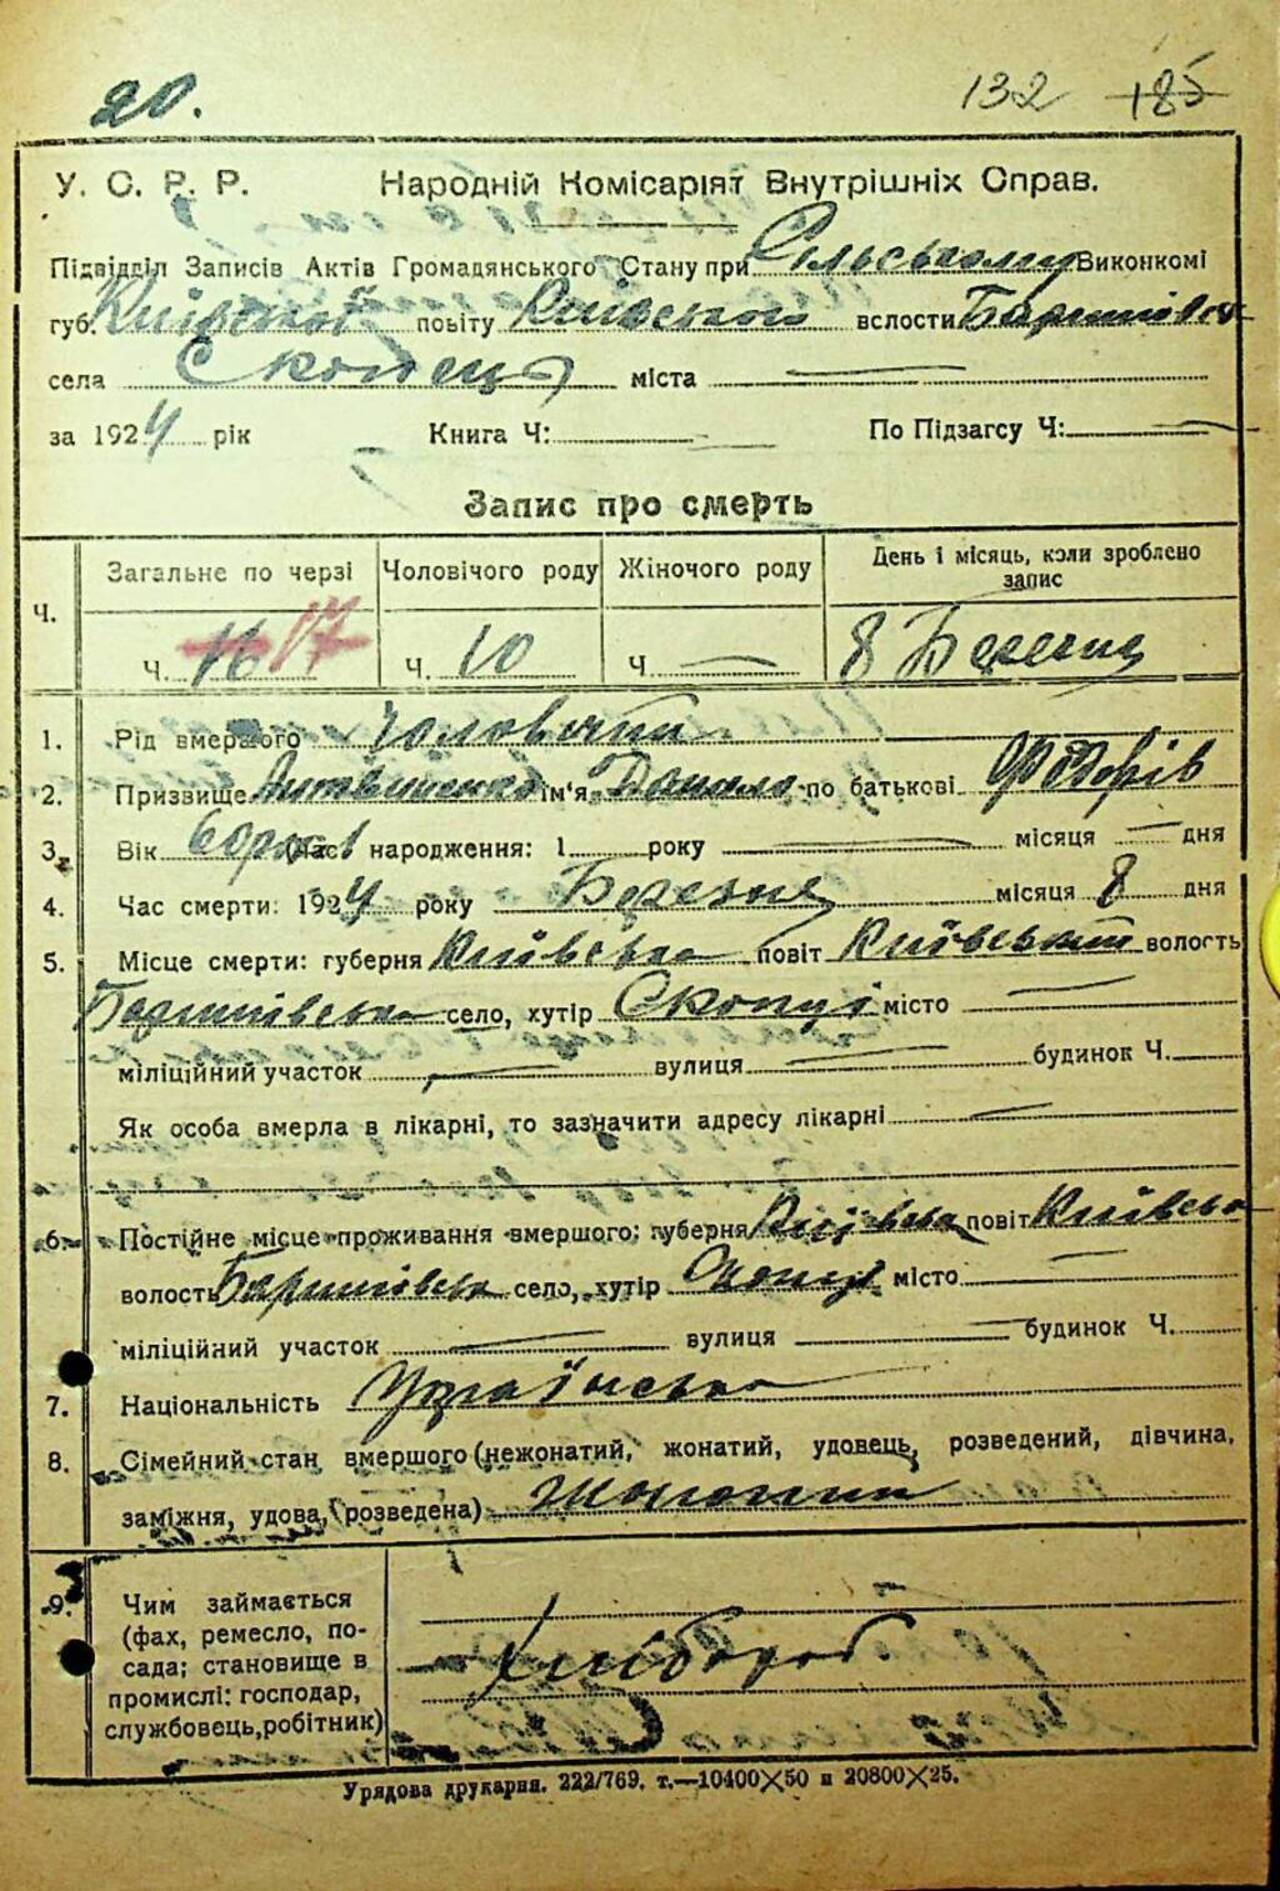 20. 132 185
У. С. Р. Р. Народній Комісаріят Внутрішніх Справ.
Підвідділ Записів Актів Громадянського Стану при Сільському Виконкомі
губ. Київської повіту Київського вслости Баришівск
села Скопец міста
за 1924 рік Книга Ч: По Підзагсу Ч:
Запис про смерть
Загальне по черзі Чоловічого роду Жіночого роду День і місяць, коли зроблено запис
Ч.
Ч. 16 17 Ч. 10 Ч. 8 Березня
1. Рід вмершого Чоловічий
2. Призвище Литвиненко ім'я Данило по батькові Федорів
3. Вік 60 рок. Час народження: 1 року місяця дня
4. Час смерти: 1924 року Березня місяця 8 дня
5. Місце смерти: губерня Київська повіт Київський волость
Баришівська село, хутір Скопці місто
міліційний участок вулиця будинок Ч.
Як особа вмерла в лікарні, то зазначити адресу лікарні
6. Постійне місце проживання вмершого: губерня Київська повіт Київсько
волость Баришівська село, хутір Скопці місто
міліційний участок вулиця будинок Ч.
7. Національність Українська
8. Сімейний стан вмершого (нежонатий, жонатий, удовець, розведений, дівчина,
заміжня, удова, розведена) Жонатий
9. Чим займається
(фах, ремесло, по-
сада; становище в
промислі: господар,
службовець, робітник)
Хлібороб.
Урядова друкарня. 222/769. т.—10400×50 и 20800×25.